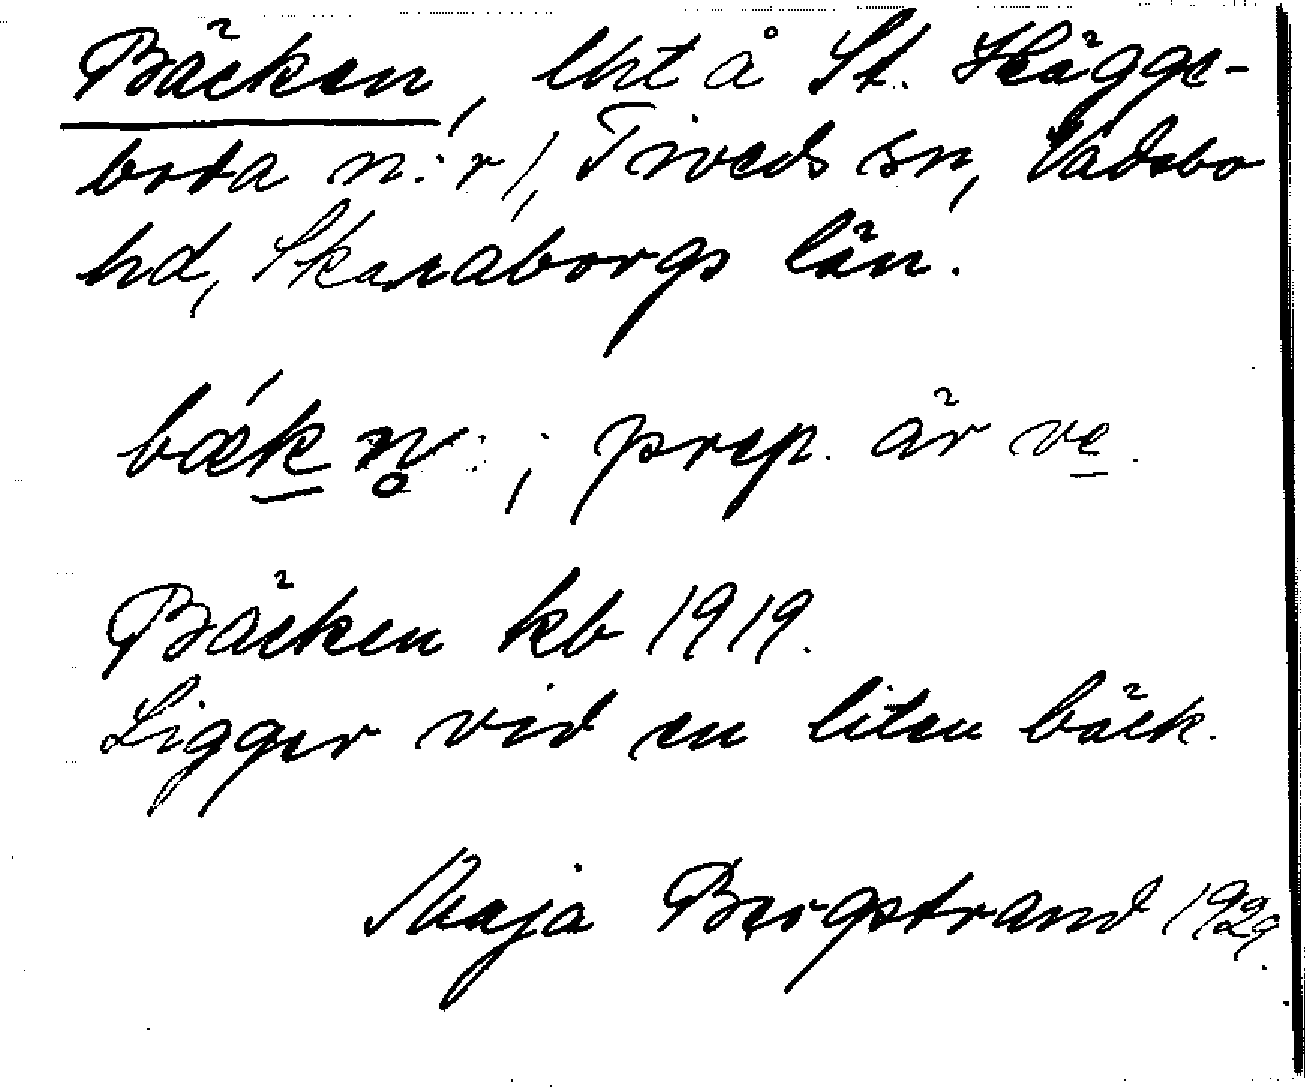 Bäcken, lht å St. Hägge-
boda n:r 1, Tiveds sn, Vadsbo
hd, Skaraborgs län.
bǽk n̥ :; prep. är ve.
Bäcken kb 1919.
Ligger vid en liten bäck.
Maja Bergstrand 1929.